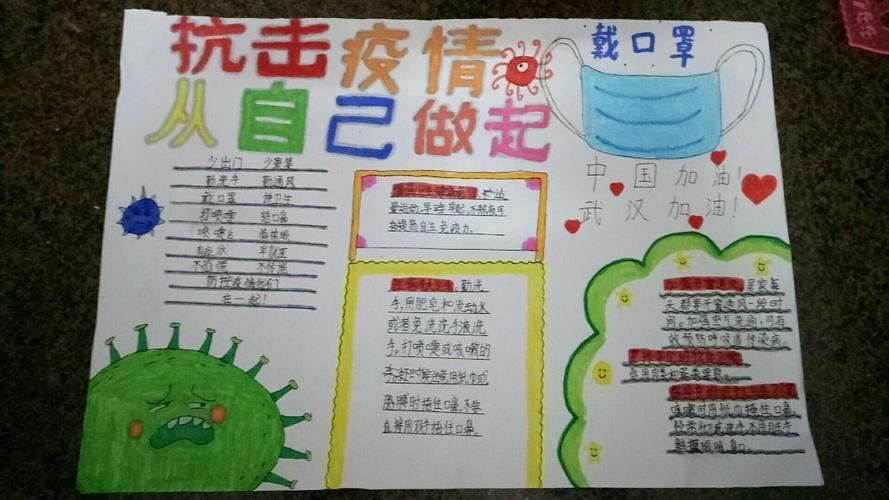 抗击疫情
从自己做起
戴口罩
中国加油!
武汉加油!
少出门 少聚集
勤洗手 勤通风
戴口罩 讲卫生
打喷嚏 捂口鼻
喷嚏后 慎揉眼
有症状 早就医
不恐慌 不传谣
防控疫情我们
在一起!
量运动,早睡早起,不熬夜可
提高自主免疫力。
勤洗
手,用肥皂和流动水
或者免洗洗手液洗
手。打喷嚏或咳嗽的
时候注意用纸巾或
胳膊肘捂住口鼻,不要
直接用双手捂住口鼻。
居家每
天都要开窗通风一段时
间。加强空气流通,可有
效预防呼吸道传染病。
咳嗽时用纸巾捂住口鼻,
经常彻底洗手,不用脏手
触摸眼睛、鼻、口。